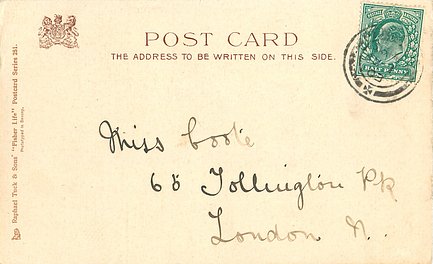 POST CARD
THE ADDRESS TO BE WRITTEN ON THIS SIDE.
HALF PENNY
Raphael Tuck & Sons' "Fisher Life" Postcard Series 251.
Miss Coote
68 Tollington Pk
London N.